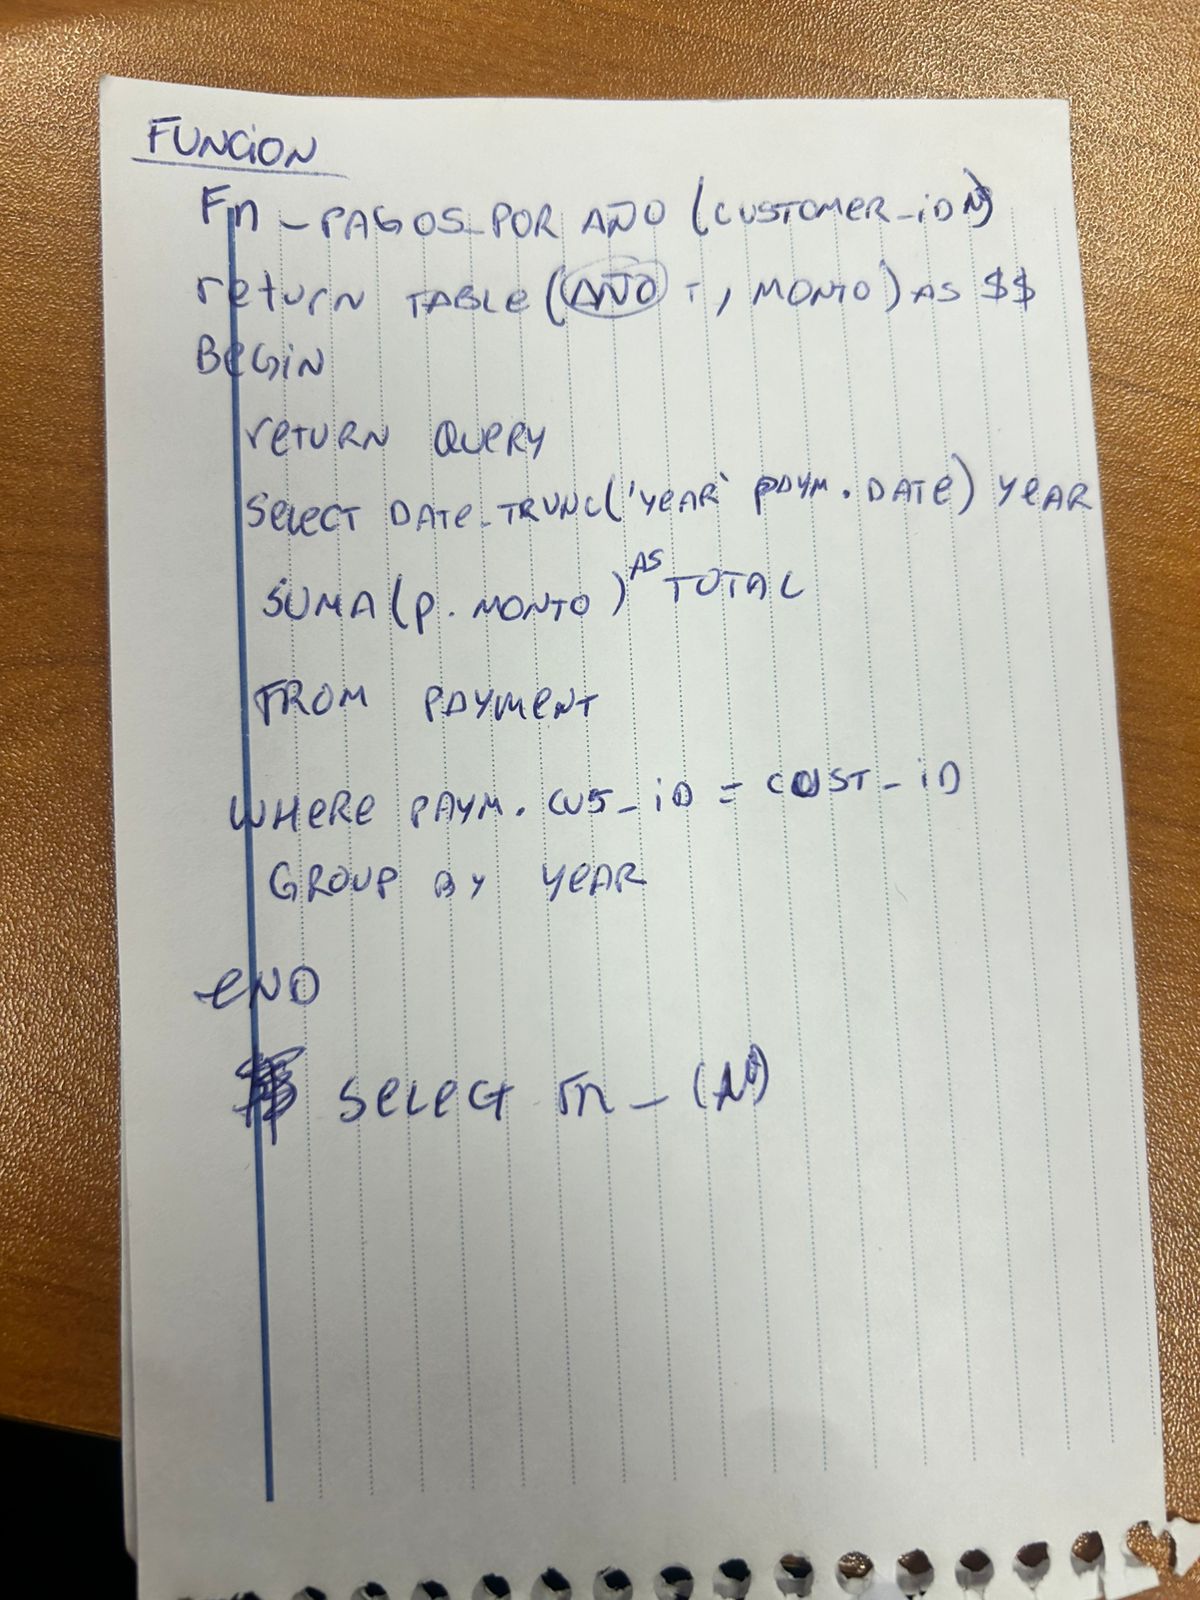 FUNCION
Fn_PAGOS_POR AÑO (CUSTOMER_iD N)
return TABLE (AÑO T, MONTO) AS $$
BEGIN
RETURN QUERY
SELECT DATE_TRUNC('YEAR' PAYM.DATE) YEAR
SUMA (P. MONTO) AS TOTAL
FROM PAYMENT
WHERE PAYM. CUS_iD = CUST_iD
GROUP BY YEAR
END
SELECT Fn_(Nº)